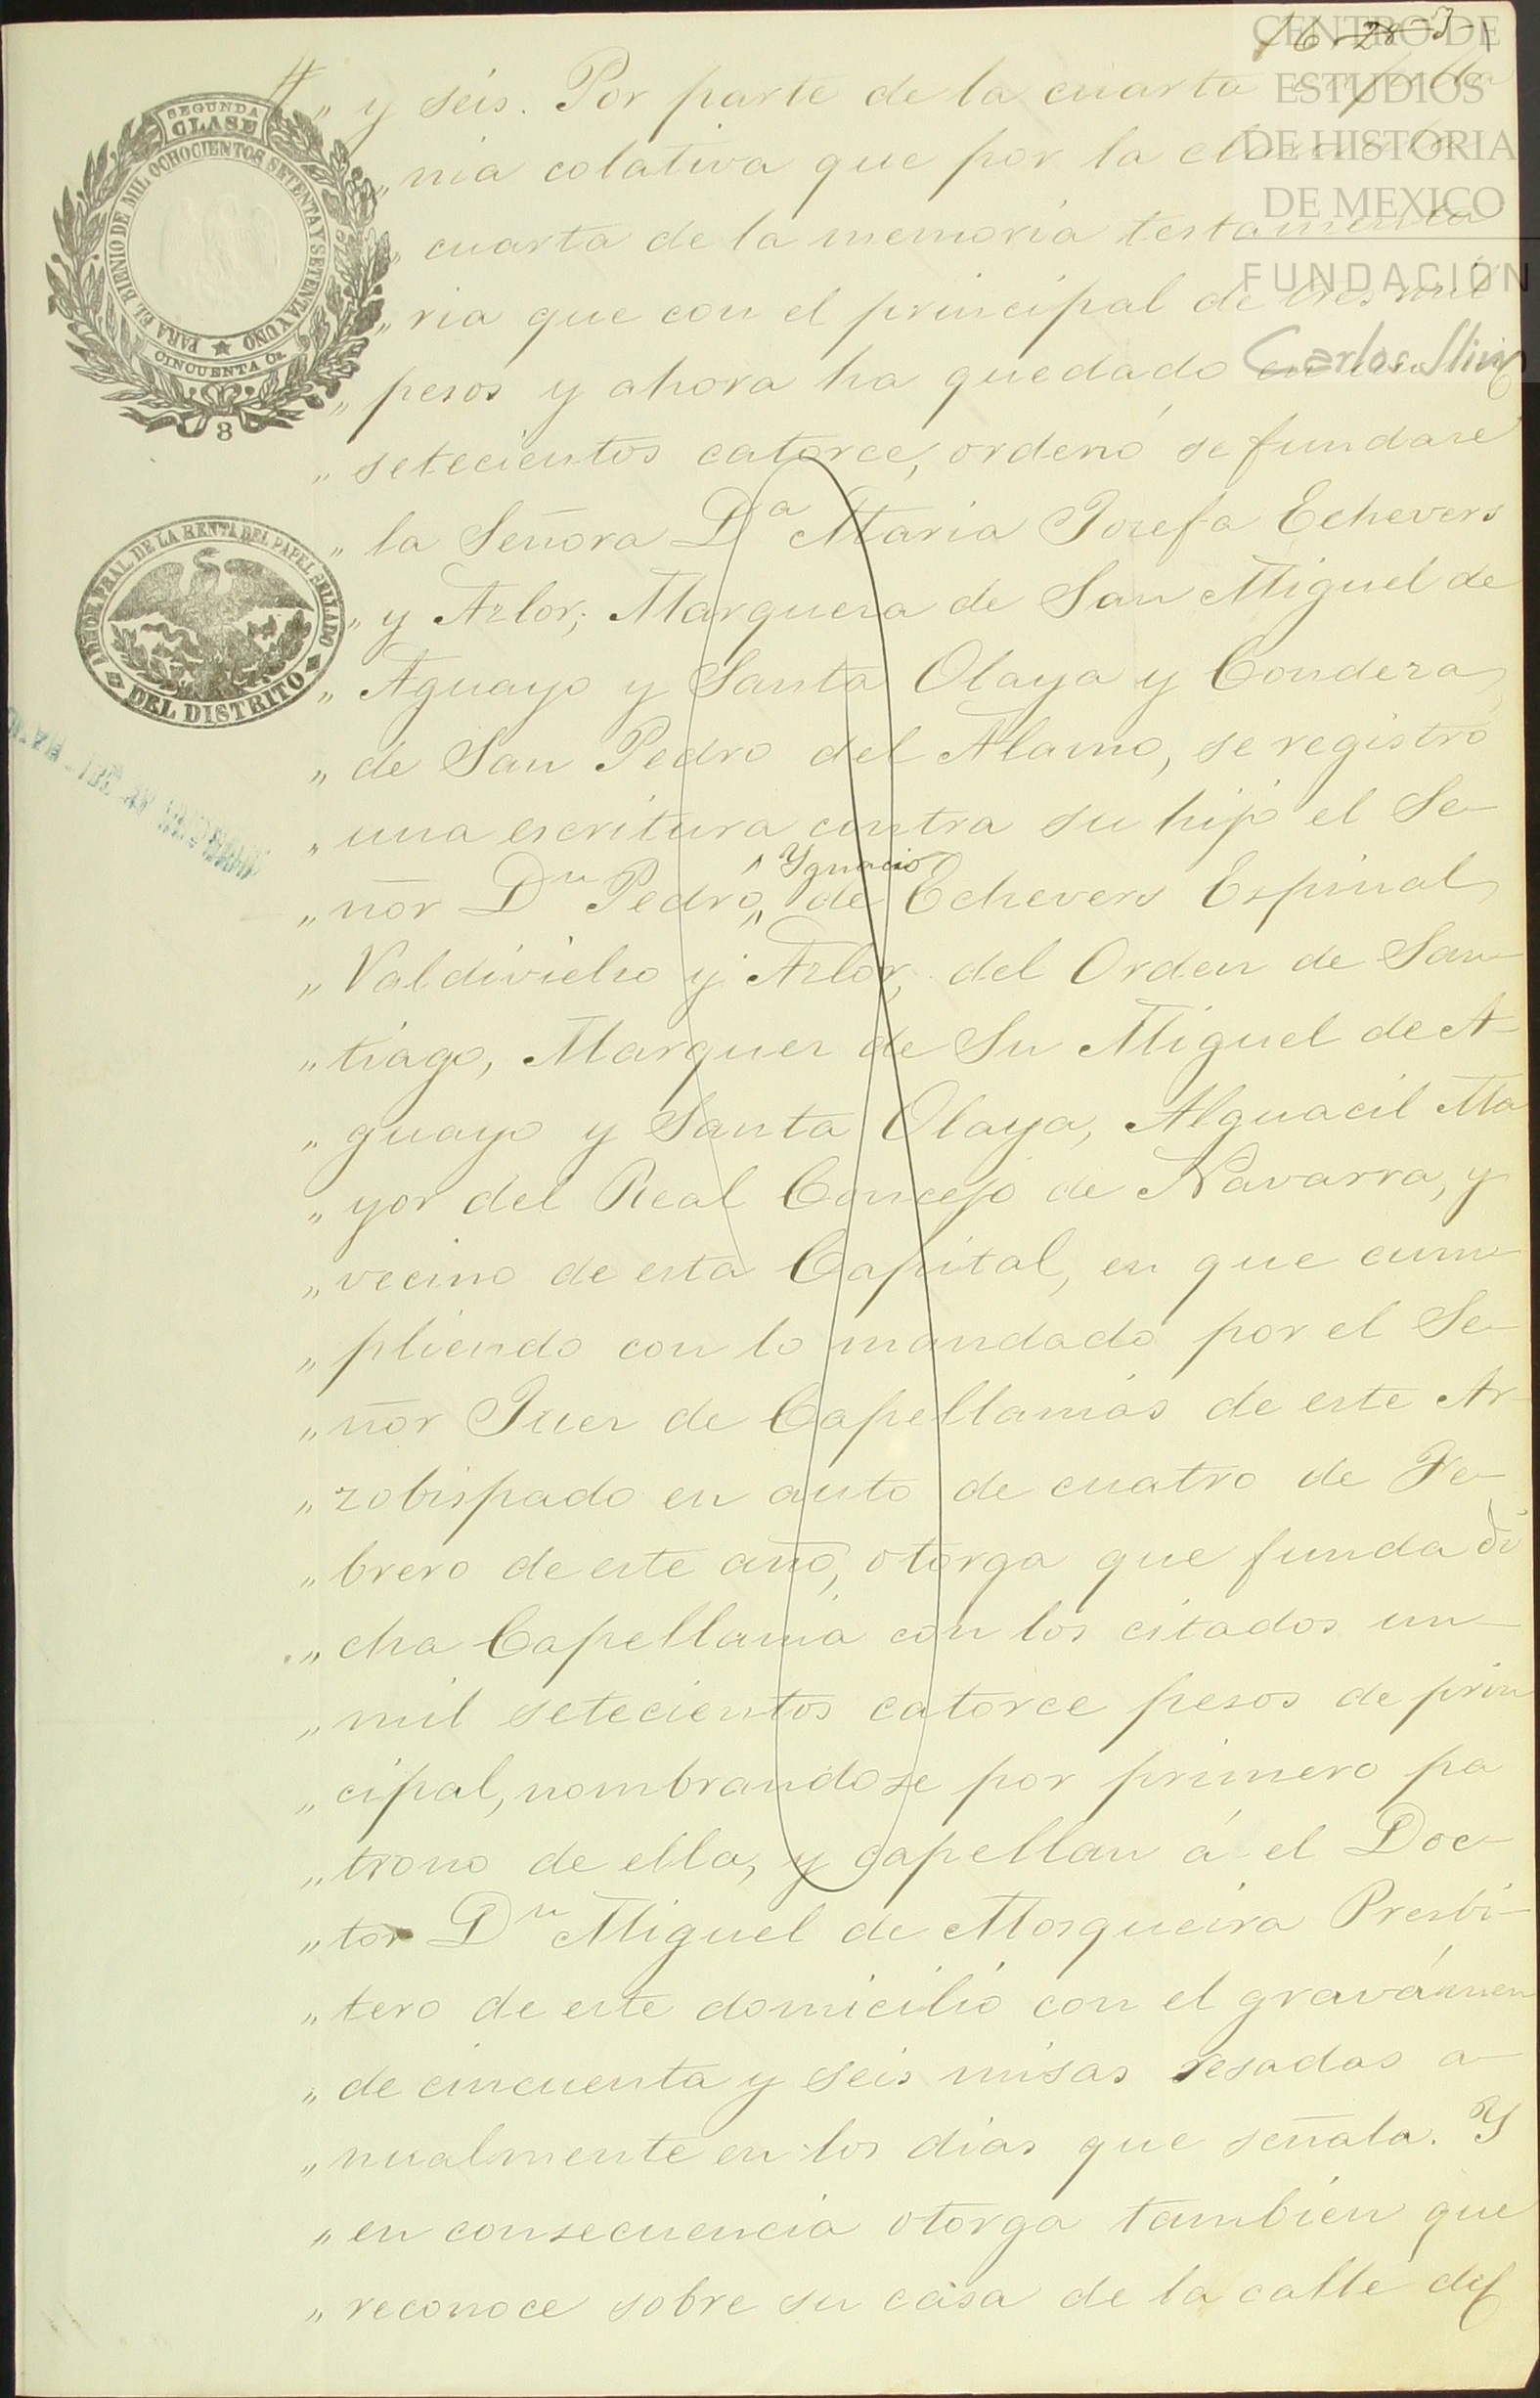 16-28-3-1
CENTRO DE
ESTUDIOS
DE HISTORIA
DE MEXICO
FUNDACIÓN
Carlos Slim
SEGUNDA
CLASE
PARA EL BIENIO DE MIL OCHOCIENTOS SETENTA Y SETENTA Y UNO
CINCUENTA Cs.
8
PRAL DE LA RENTA DEL PAPEL SELLADO
DEL DISTRITO
„ y seis. Por parte de la cuarta capella
„ nia colativa que por la clausula
„ cuarta de la memoria testamenta
„ ria que con el principal de tres mil
„ pesos y ahora ha quedado en un mil
„ setecientos catorce, ordenó se fundase
„ la Señora Dª Maria Josefa Echevers
„ y Azlor, Marqueza de San Miguel de
„ Aguayo y Santa Olaya y Condeza
„ de San Pedro del Alamo, se registró
„ una escritura contra su hijo el Se-
„ ñor Dn Pedro Ygnacio de Echevers Espinal
„ Valdivielso y Azlor, del Orden de San-
„ tiago, Marquez de Sn Miguel de A-
„ guayo y Santa Olaya, Alguacil Ma
„ yor del Real Concejo de Navarra, y
„ vecino de esta Capital, en que cum-
„ pliendo con lo mandado por el Se-
„ ñor Juez de Capellanías de este Ar-
„ zobispado en auto de cuatro de Fe-
„ brero de este año, otorga que funda di
„ cha Capellanía con los citados un-
„ mil setecientos catorce pesos de prin
„ cipal, nombrandose por primero pa
„ trono de ella, y capellan á el Doc-
„ tor Dn Miguel de Mosqueira Presbi-
„ tero de este domicilio con el gravámen
„ de cincuenta y seis misas resadas a-
„ nualmente en los dias que señala. Y
„ en consecuencia otorga tambien que
„ reconoce sobre su casa de la calle del